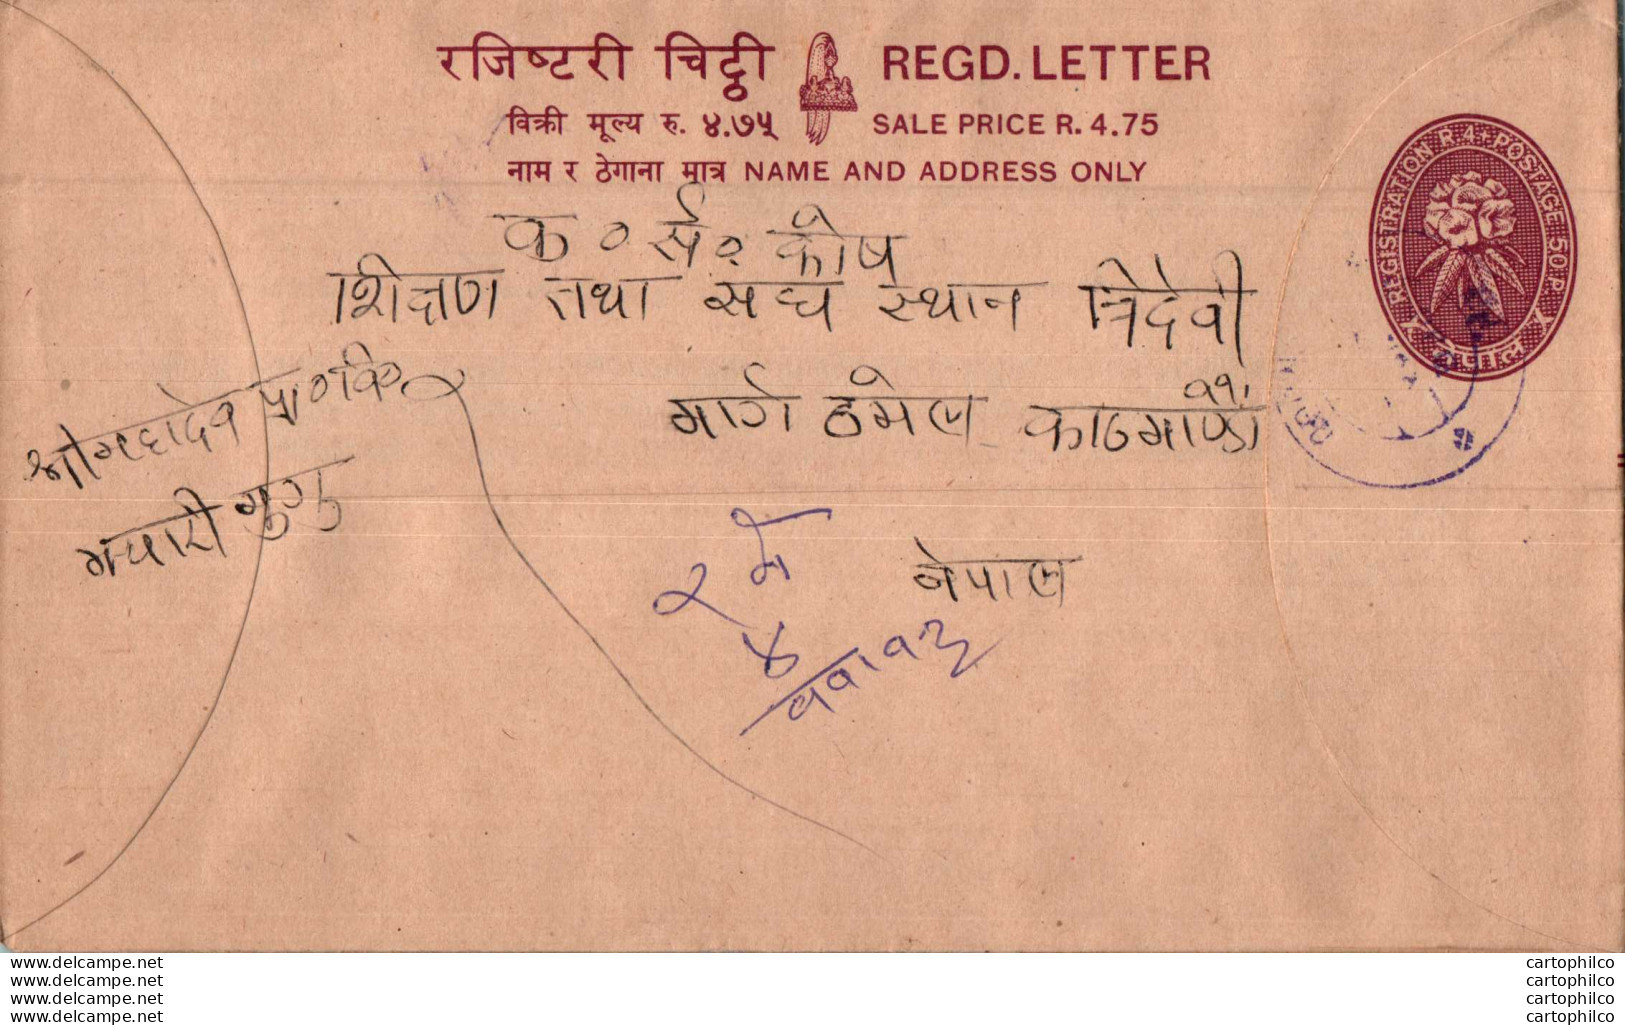 रजिष्टरी चिट्ठी REGD. LETTER
विक्री मूल्य रु. ४.७५ SALE PRICE R. 4.75
नाम र ठेगाना मात्र NAME AND ADDRESS ONLY
REGISTRATION R.4+POSTAGE 50 P.
नेपाल
क॰ सं॰ कोष
शिक्षण तथा सघ स्थान त्रिदेवी
मार्ग ठमेल काठमाण्डौ
नेपाल
श्री महादेव प्रा॰ वि॰
www.delcampe.net cartophilco
www.delcampe.net cartophilco
www.delcampe.net cartophilco
www.delcampe.net cartophilco